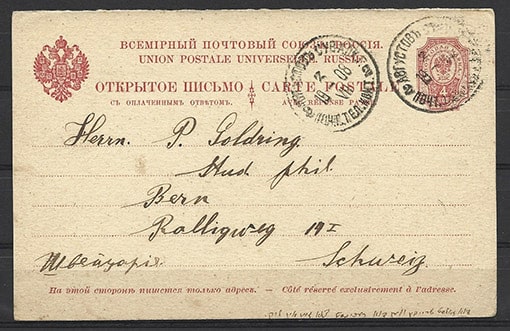 ВСЕМІРНЫЙ ПОЧТОВЫЙ СОЮЗЪ. РОССІЯ.
UNION POSTALE UNIVERSELLE. RUSSIE.
ОТКРЫТОЕ ПИСЬМО CARTE POSTALE
СЪ ОПЛАЧЕННЫМЪ ОТВѢТОМЪ. AVEC RÉPONSE PAYÉE
АВГУСТОВЪ
ПОЧТ.
4
Herrn. P. Goldring.
Stud phil.
Bern
Ralligweg 19 I
Швейцарія. Schweiz.
На этой сторонѣ пишется только адресъ. — Côté réservé exclusivement à l'adresse.